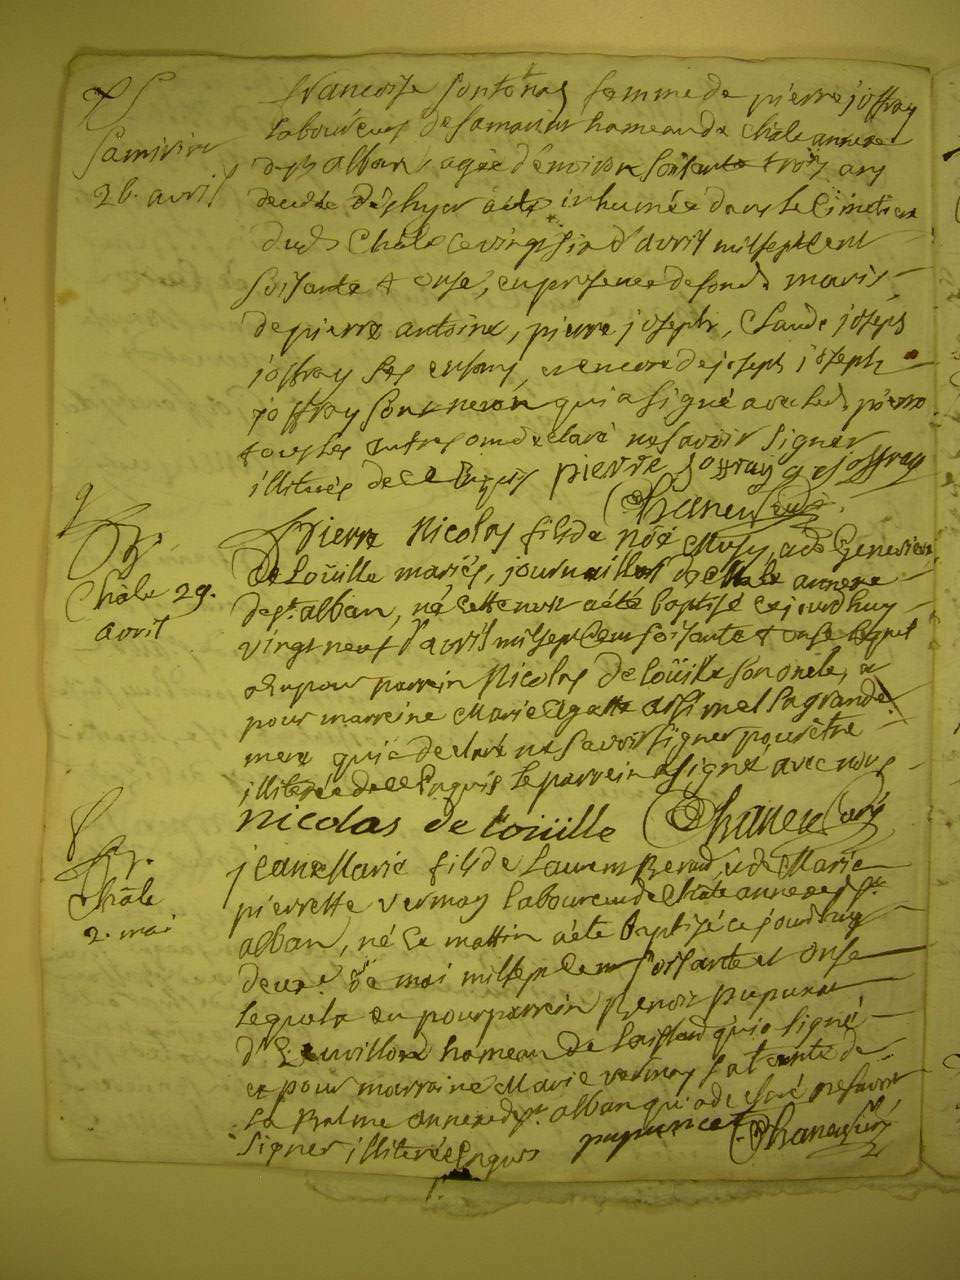 francoise fontanas femme de pierre joffray
laboureur de hameau de Châle annexe
de st alban, agée d'environ soisante & trois ans
decedée a été inhumée dans le Cimetiere
dud Châle ce vingt six d'avril mil sept Cent
soisante & onse, en presence de sond. maris
de pierre antoine, pierre joseph, Claude joseph
joffray ses enfans, et encore de joseph joseph
joffray son neveu qui a signé avec led. pierre
tous les autres ont declaré ne savoir signer
illiterés de ce Enquis pierre joffray joffray
26. avril
Chaneu Curé
Châle 29.
avril
pierre Nicolas fils de noé Musy, & de Genevieve
de Loüille mariés, journailler de Châle annexe
de st. alban, né cette nuit a été baptisé ce jourdhuy
vingt neuf d'avril mil sept Cent soisante & onse lequel
a eu pour parrein Nicolas de Loüille son oncle, &
pour marreine Marie Agatte la grande
mere qui a declaré ne savoir signer pour être
illiterée de ce Enquis le parrein a signé avec nous
nicolas de loüille Chaneu Curé
Châle
2. mai
jean Marie fils de Laurent Benod, & de Marie
pierrette vermay laboureur de Châle annexe de st.
alban, né ce mattin a été baptisé ce jourdhuy
deux de mai mil sept Cent soisante et onse
lequel a eu pour parrein Benoit pupunat
hameau de qui a signé
et pour marraine Marie vermay sa tante de
la Balme annexe de st. alban qui a declaré ne savoir
signer illiterée Enquis Chaneu Curé